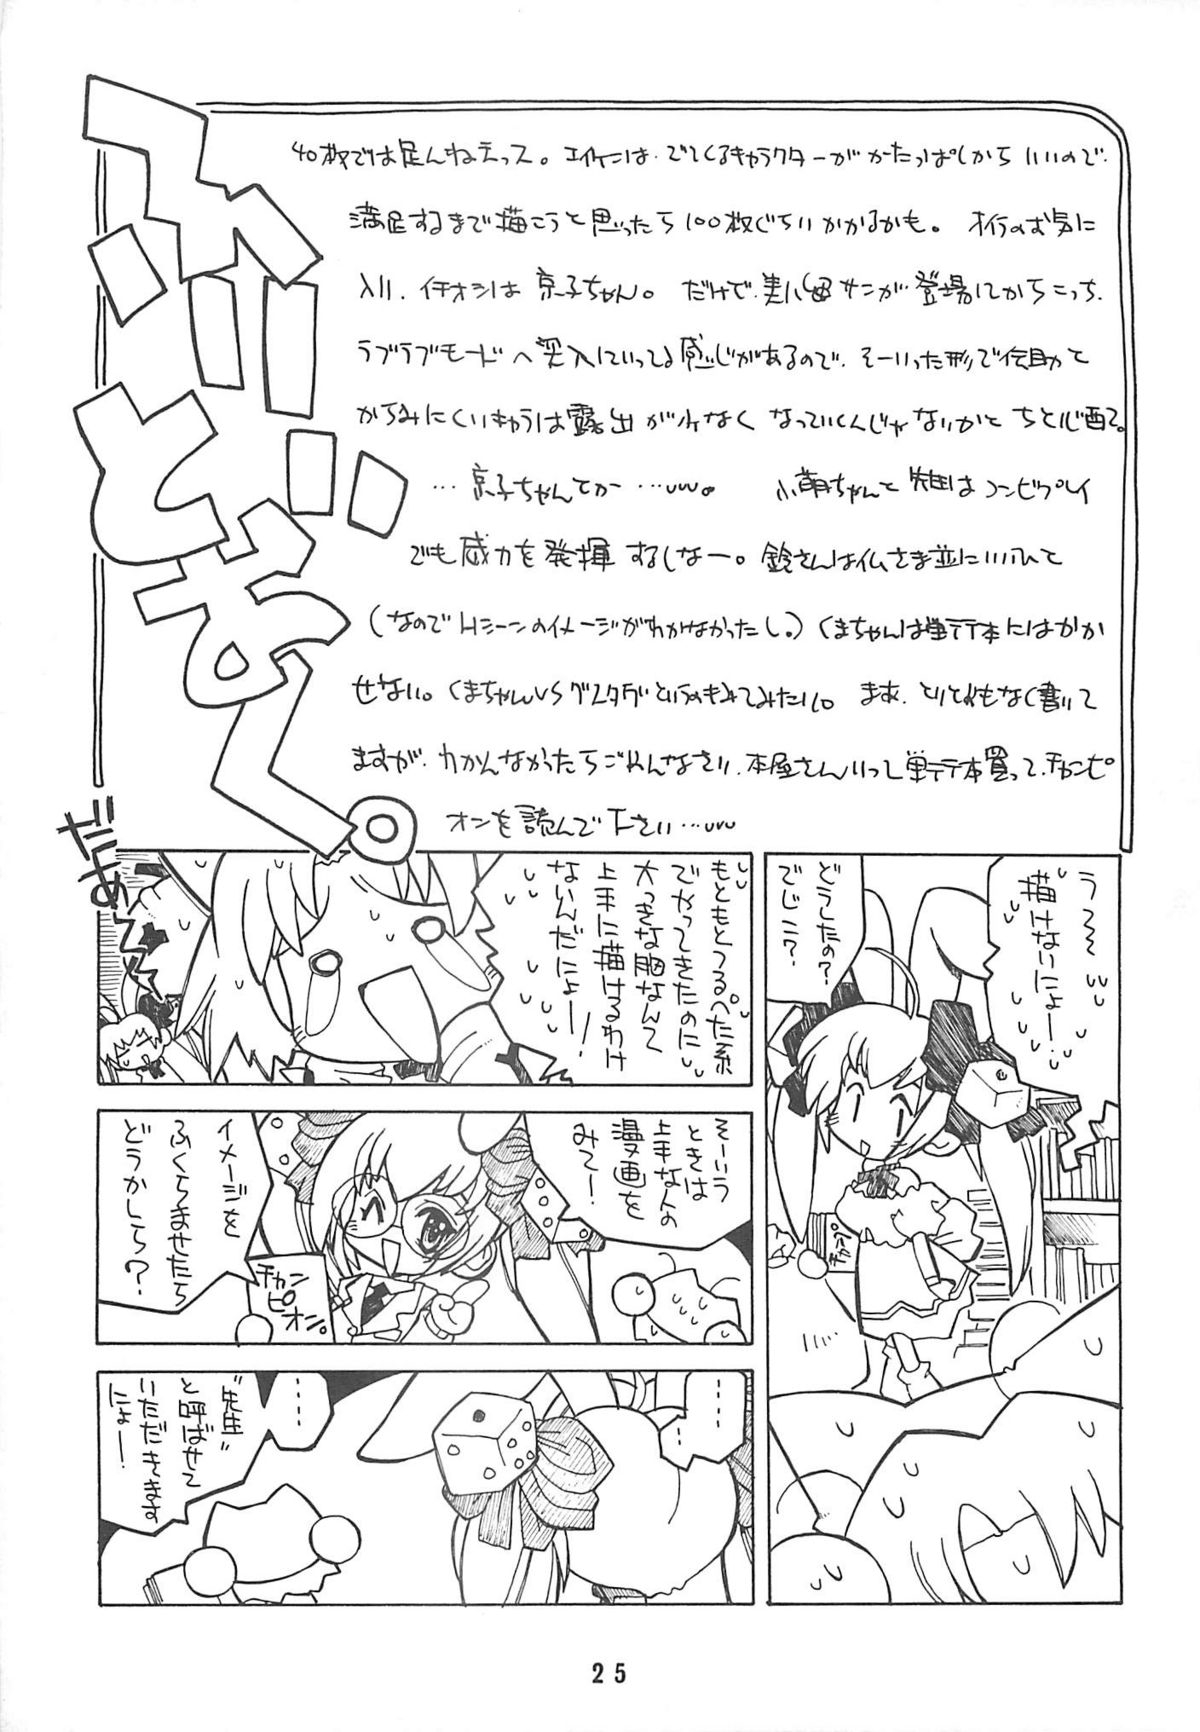 あとがき。
40枚では足んねえっス。エイケンは、でてくるキャラクターがかたっぱしからいいので、
満足するまで描こうと思ったら100枚ぐらいかかるかも。オイラのお気に
入り、イチオシは京子ちゃん。だけで、美山母サンが登場してからこっち、
ラブラブモードへ突入していってる感じがあるので、そーいった形で伝助と
からみにくいキャラは露出が少なくなっていくんじゃないかとちと心配。
…京子ちゃんてか…。小萌ちゃんと雉はコンビプレイ
でも威力を発揮するしなー。鈴さんは仏さま並にいいひとで
(なのでHシーンのイメージがわかなかったし。)くまちゃんは単行本にはかか
せない。くまちゃんVSグスタグというのもみてみたい。まあ、とりとめもなく書いて
ますが、わかんなかったらごめんなさい、本屋さんいって単行本買って、チャンピ
オンを読んで下さい…
う~~
描けないにょー
どうしたの?
でじこ?
チャンピ
もともとつるぺた系
でやってきたのに
大っきな胸なんて
上手に描けるわけ
ないんだにょー!
だあぁ
そーいう
ときは
上手な人の
漫画を
みてー!
イメージを
ふくらませたら
どうかしら?
チャン
ピオン。
……
……
"先生"
と呼ばせて
いただきます
にょー!
25